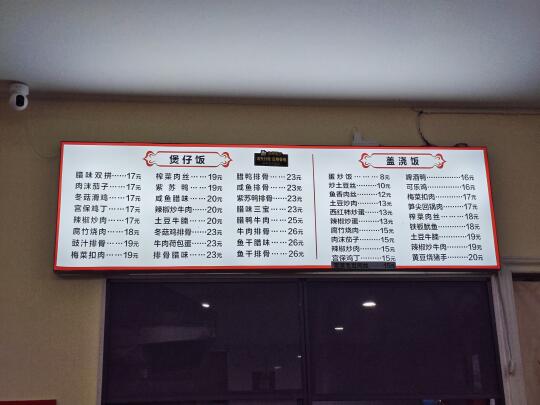 煲仔饭
腊味双拼……17元
肉沫茄子……17元
冬菇滑鸡……17元
宫保鸡丁……17元
辣椒炒肉……17元
腐竹烧肉……18元
豉汁排骨……19元
梅菜扣肉……19元
榨菜肉丝……19元
紫苏鸭……19元
咸鱼腊味……20元
辣椒炒牛肉……20元
土豆牛腩……20元
冬菇鸡排骨……23元
牛肉荷包蛋……23元
排骨腊味……23元
腊鸭排骨……23元
咸鱼排骨……23元
紫苏鸭排骨……23元
腊味三宝……23元
腊鸭牛肉……25元
牛肉排骨……26元
鱼干腊味……26元
鱼干排骨……26元
盖浇饭
蛋炒饭……8元
炒土豆丝……10元
鱼香肉丝……12元
土豆炒肉……13元
西红柿炒蛋……13元
辣椒炒蛋……13元
腐竹烧肉……15元
肉沫茄子……15元
辣椒炒肉……15元
宫保鸡丁……15元
15元
啤酒鸭……16元
可乐鸡……16元
梅菜扣肉……17元
笋尖回锅肉……17元
榨菜肉丝……18元
铁板鱿鱼……18元
土豆牛腩……19元
辣椒炒牛肉……19元
黄豆烧猪手……20元